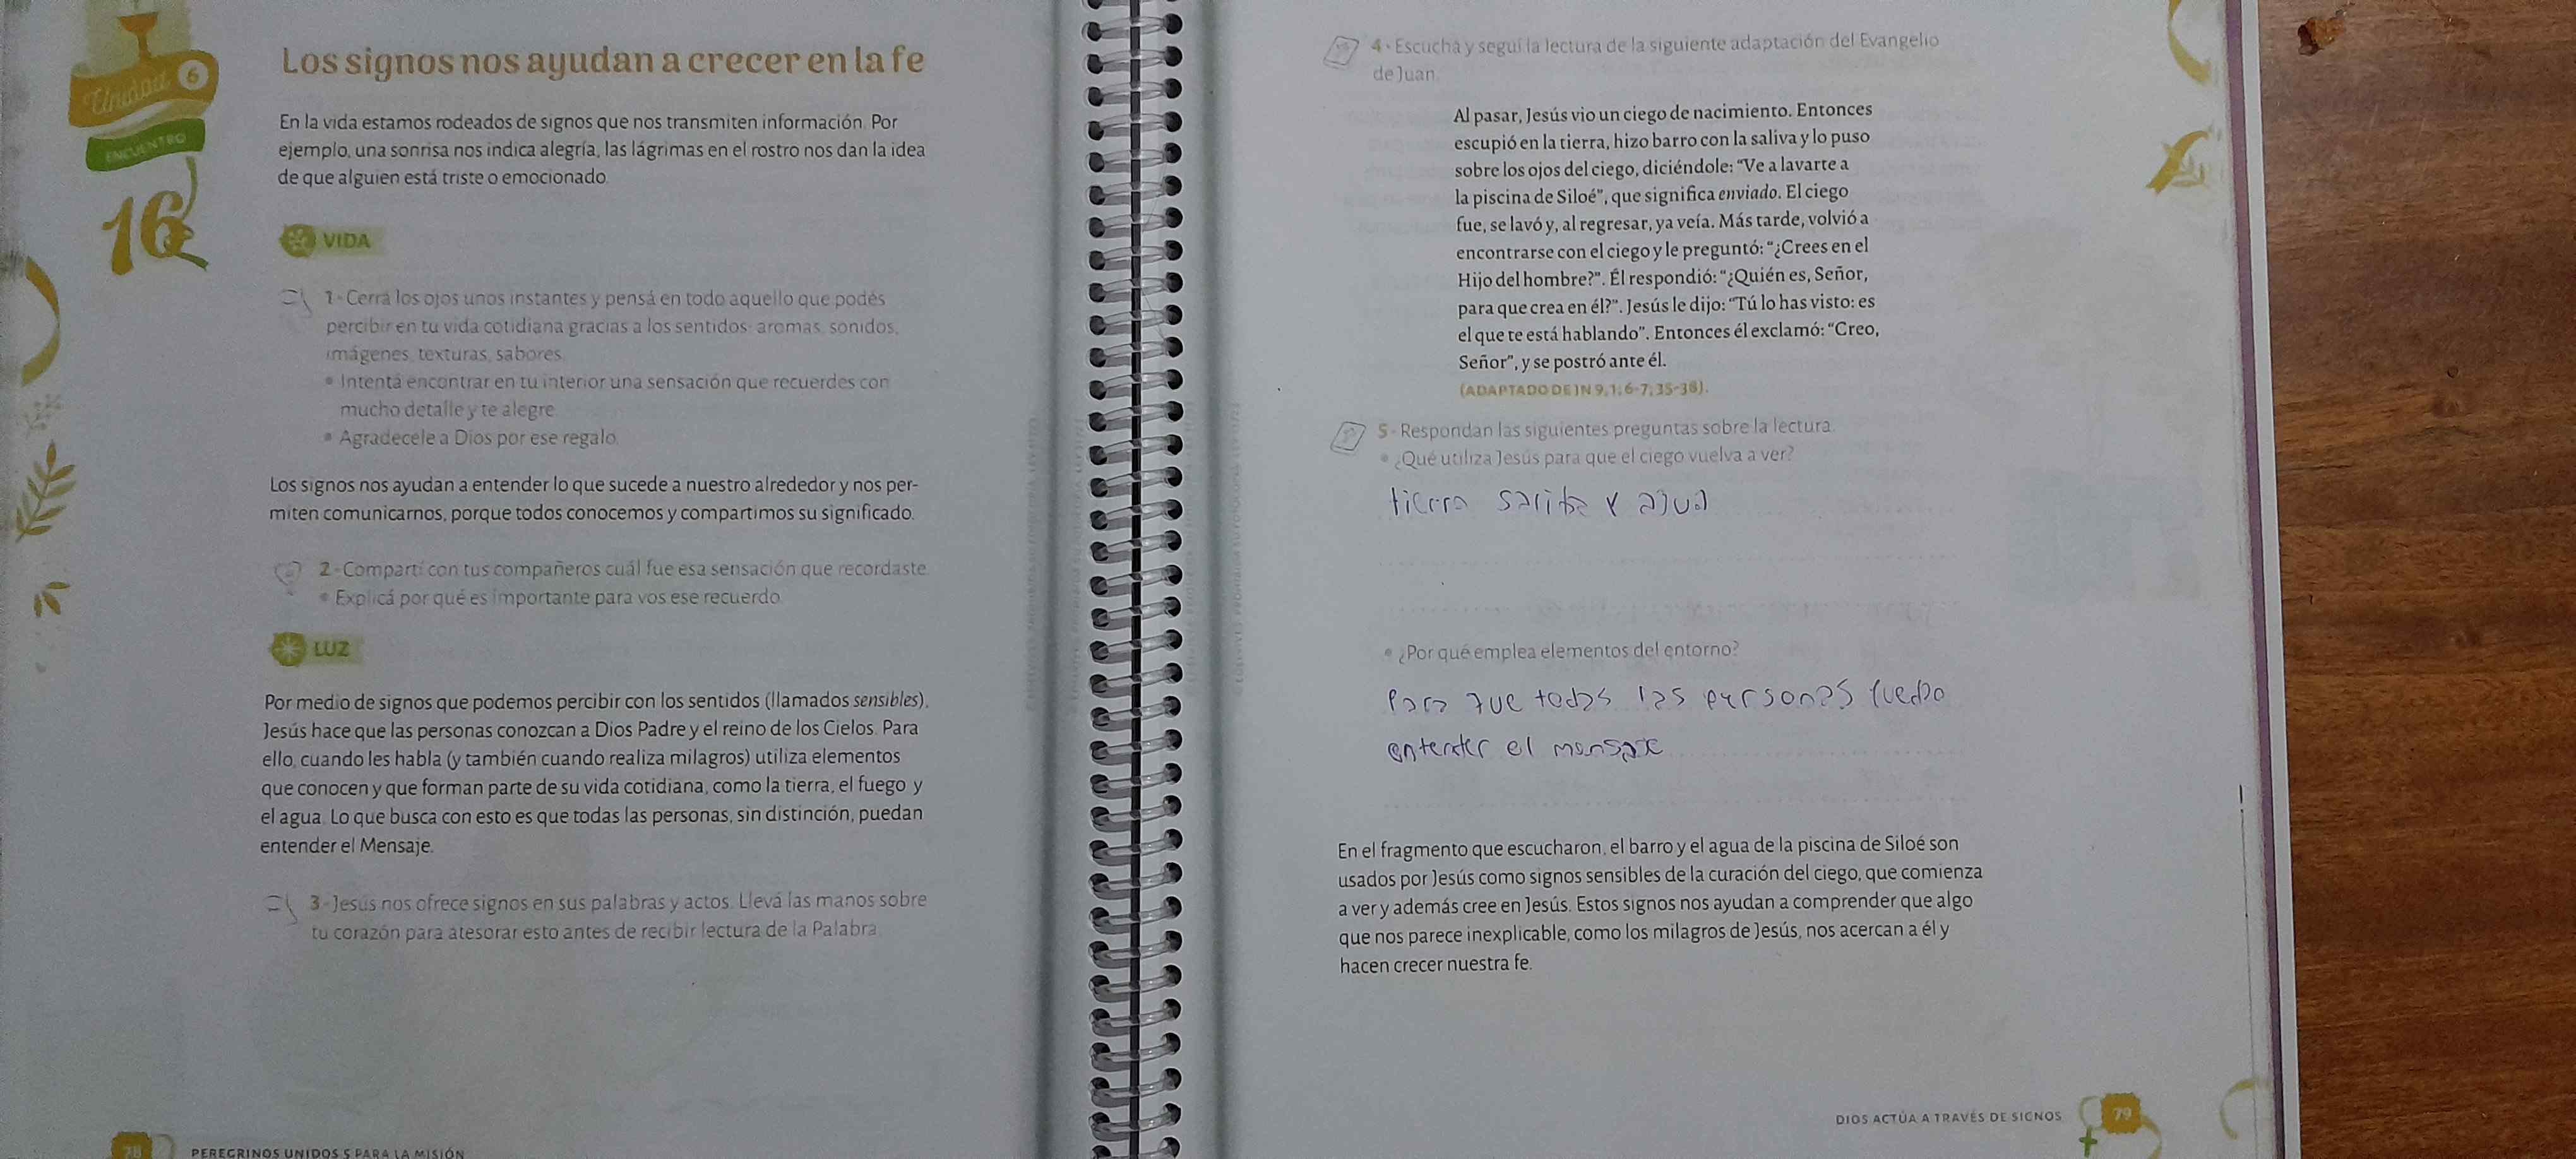 Unidad 6
ENCUENTRO
16
Los signos nos ayudan a crecer en la fe
En la vida estamos rodeados de signos que nos transmiten información. Por
ejemplo, una sonrisa nos indica alegría, las lágrimas en el rostro nos dan la idea
de que alguien está triste o emocionado.
VIDA
1 - Cerrá los ojos unos instantes y pensá en todo aquello que podés
percibir en tu vida cotidiana gracias a los sentidos: aromas, sonidos,
imágenes, texturas, sabores.
• Intentá encontrar en tu interior una sensación que recuerdes con
mucho detalle y te alegre.
• Agradecele a Dios por ese regalo.
Los signos nos ayudan a entender lo que sucede a nuestro alrededor y nos per-
miten comunicarnos, porque todos conocemos y compartimos su significado.
2 - Compartí con tus compañeros cuál fue esa sensación que recordaste.
• Explicá por qué es importante para vos ese recuerdo.
LUZ
Por medio de signos que podemos percibir con los sentidos (llamados sensibles),
Jesús hace que las personas conozcan a Dios Padre y el reino de los Cielos. Para
ello, cuando les habla (y también cuando realiza milagros) utiliza elementos
que conocen y que forman parte de su vida cotidiana, como la tierra, el fuego y
el agua. Lo que busca con esto es que todas las personas, sin distinción, puedan
entender el Mensaje.
3 - Jesús nos ofrece signos en sus palabras y actos. Llevá las manos sobre
tu corazón para atesorar esto antes de recibir lectura de la Palabra.
78 PEREGRINOS UNIDOS 5 PARA LA MISIÓN
4 - Escuchá y seguí la lectura de la siguiente adaptación del Evangelio
de Juan.
Al pasar, Jesús vio un ciego de nacimiento. Entonces
escupió en la tierra, hizo barro con la saliva y lo puso
sobre los ojos del ciego, diciéndole: “Ve a lavarte a
la piscina de Siloé”, que significa enviado. El ciego
fue, se lavó y, al regresar, ya veía. Más tarde, volvió a
encontrarse con el ciego y le preguntó: “¿Crees en el
Hijo del hombre?”. Él respondió: “¿Quién es, Señor,
para que crea en él?”. Jesús le dijo: “Tú lo has visto: es
el que te está hablando”. Entonces él exclamó: “Creo,
Señor”, y se postró ante él.
(ADAPTADO DE JN 9, 1; 6-7; 35-38).
5 - Respondan las siguientes preguntas sobre la lectura.
• ¿Qué utiliza Jesús para que el ciego vuelva a ver?
tierra saliba y agua
• ¿Por qué emplea elementos del entorno?
Para que todas las personas
entender el mensaje
En el fragmento que escucharon, el barro y el agua de la piscina de Siloé son
usados por Jesús como signos sensibles de la curación del ciego, que comienza
a ver y además cree en Jesús. Estos signos nos ayudan a comprender que algo
que nos parece inexplicable, como los milagros de Jesús, nos acercan a él y
hacen crecer nuestra fe.
DIOS ACTÚA A TRAVÉS DE SIGNOS 79